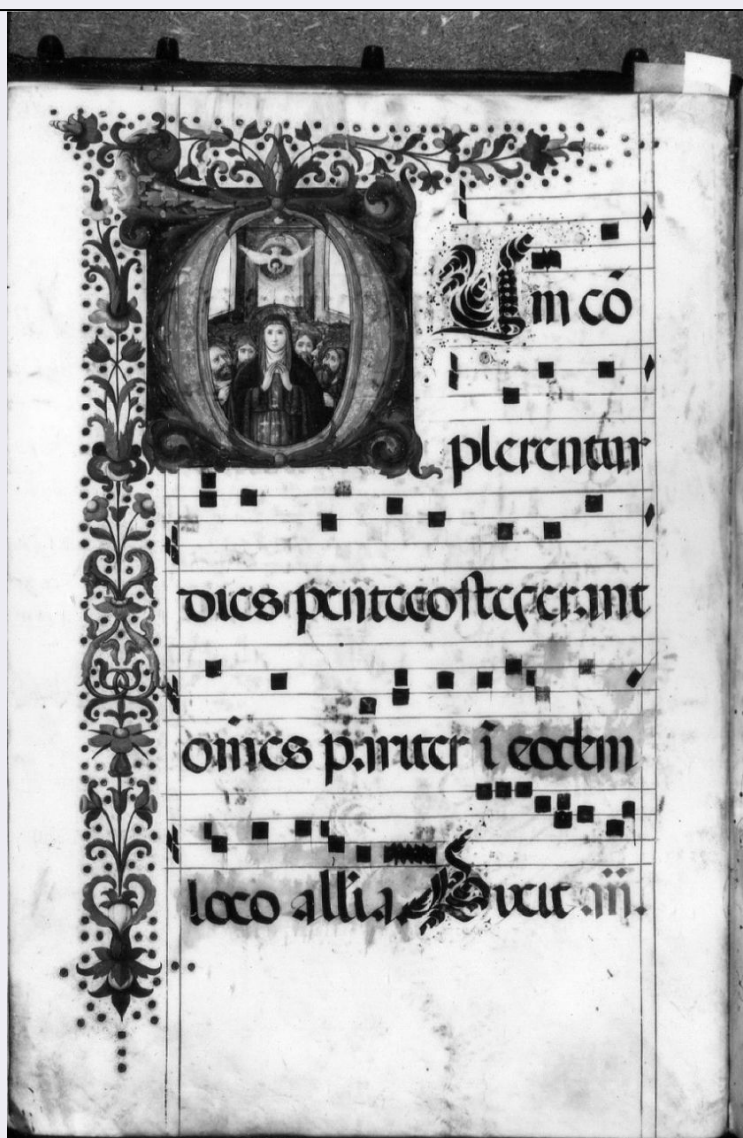 Um cō
plerentur
dies pentecostes erant
om̄es pariter ī eodem
loco all'ia Dixit añ.